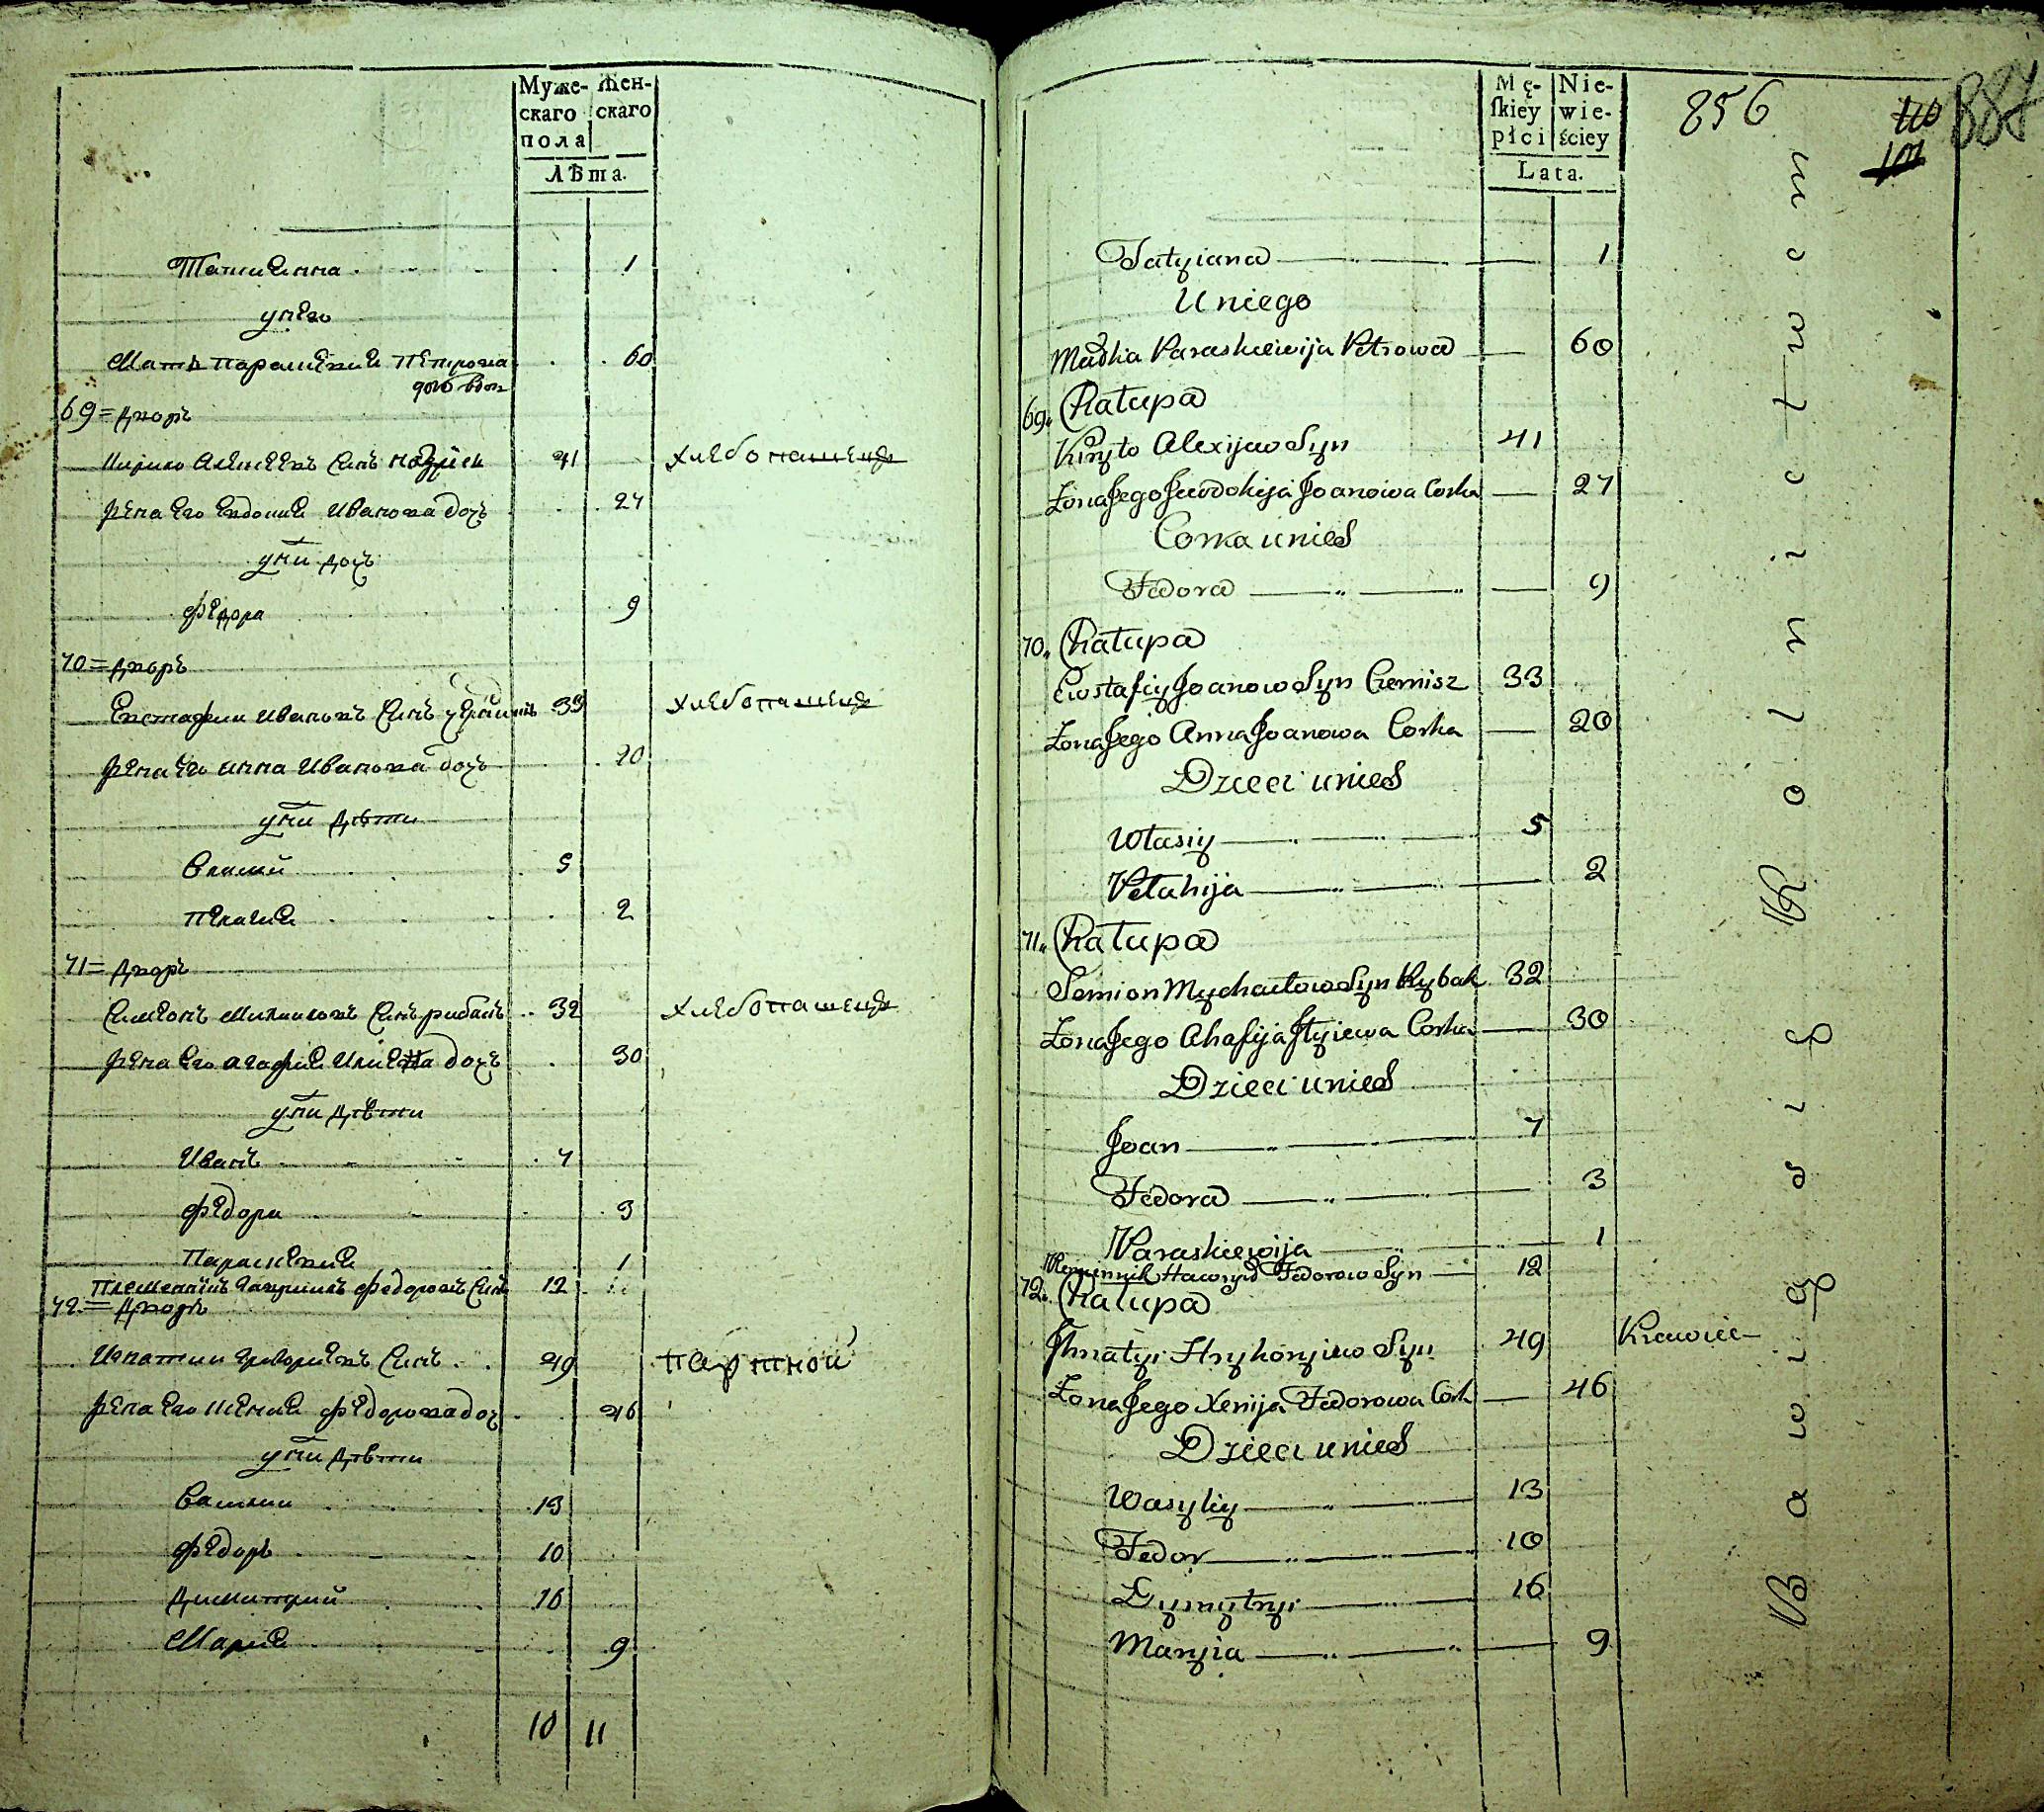 Муже-
скаго
пола
Жен-
скаго
Лѣта.
Татиянна 1
у него
Мать Параскевия Петрова 60
дочь
69 = Дворъ
Кирило Алексеевъ синъ 41 хлебопашецъ
Жена его Евдокия Иванова дочъ 27
у них дочъ
Федора 9
70 = Дворъ
Евстафии Ивановъ синъ 33 хлебопашецъ
Жена его Анна Иванова дочъ 20
у них дѣти
Власий 5
Пелагия 2
71 = Дворъ
Симеонъ Михаиловъ синъ рибакъ 32 хлебопашецъ
Жена его Агафия Илиева дочъ 30
у них дѣти
Иванъ 7
Федора 3
Параскевия 1
племенникъ Гавриилъ Федоровъ синъ 12
72 = Дворъ
Игнатии Григориевъ синъ 49 партной
Жена его Ксения Федорова доч 46
у них дѣти
Василии 13
Федоръ 10
Димитрий 16
Мария 9
10 11
Mę-
skiey
płci
Nie-
wie-
ściey
Lata.
856
110
101
887
Tatyiana 1
U niego
Matkia Paraskiewija Petrowa 60
69. Chałupa
Kiryło Alexijew Syn 41
Żona Jego Jewdokija Joanowa Corka 27
Corka u nich
Fedora 9
70. Chałupa
Ewstafiy Joanow Syn Czemisz 33
Żona Jego Anna Joanowa Corka 20
Dzieci u nich
Własiy 5
Pełahija 2
71. Chałupa
Semion Mychaiłow Syn Rybak 32
Żona Jego Ahafija Jłyiewa Corka 30
Dzieci u nich
Joan 7
Fedora 3
Paraskiewija 1
Plemennik Hawryił Fedorow Syn 12
72. Chałupa
Jhnatyi Hryhoryiew Syn 49 Krawiec
Żona Jego Xenija Fedorowa Cork 46
Dzieci u nich
Wasyliy 13
Fedor 10
Dymytryi 16
Maryia 9
Bawią się Rolnictwem